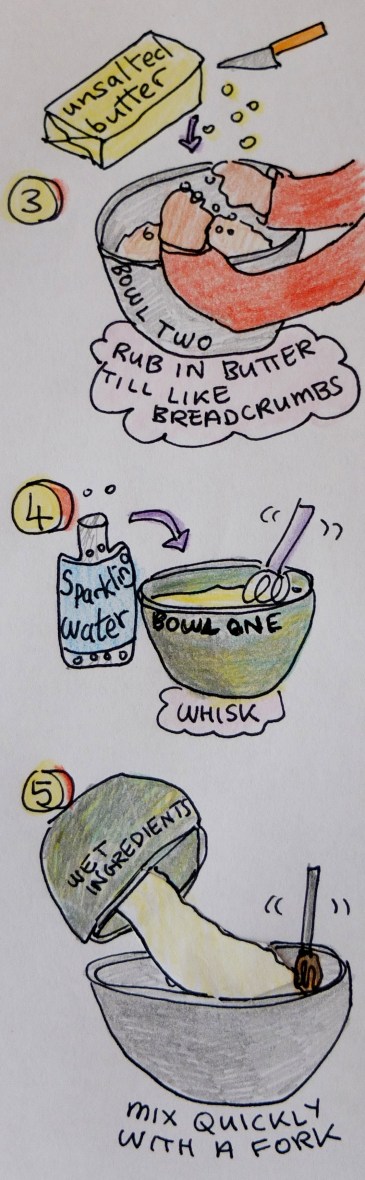 unsalted
butter
3
BOWL TWO
RUB IN BUTTER
TILL LIKE
BREADCRUMBS
4
Sparkling
water
BOWL ONE
WHISK
5
WET
INGREDIENTS
MIX QUICKLY
WITH A FORK